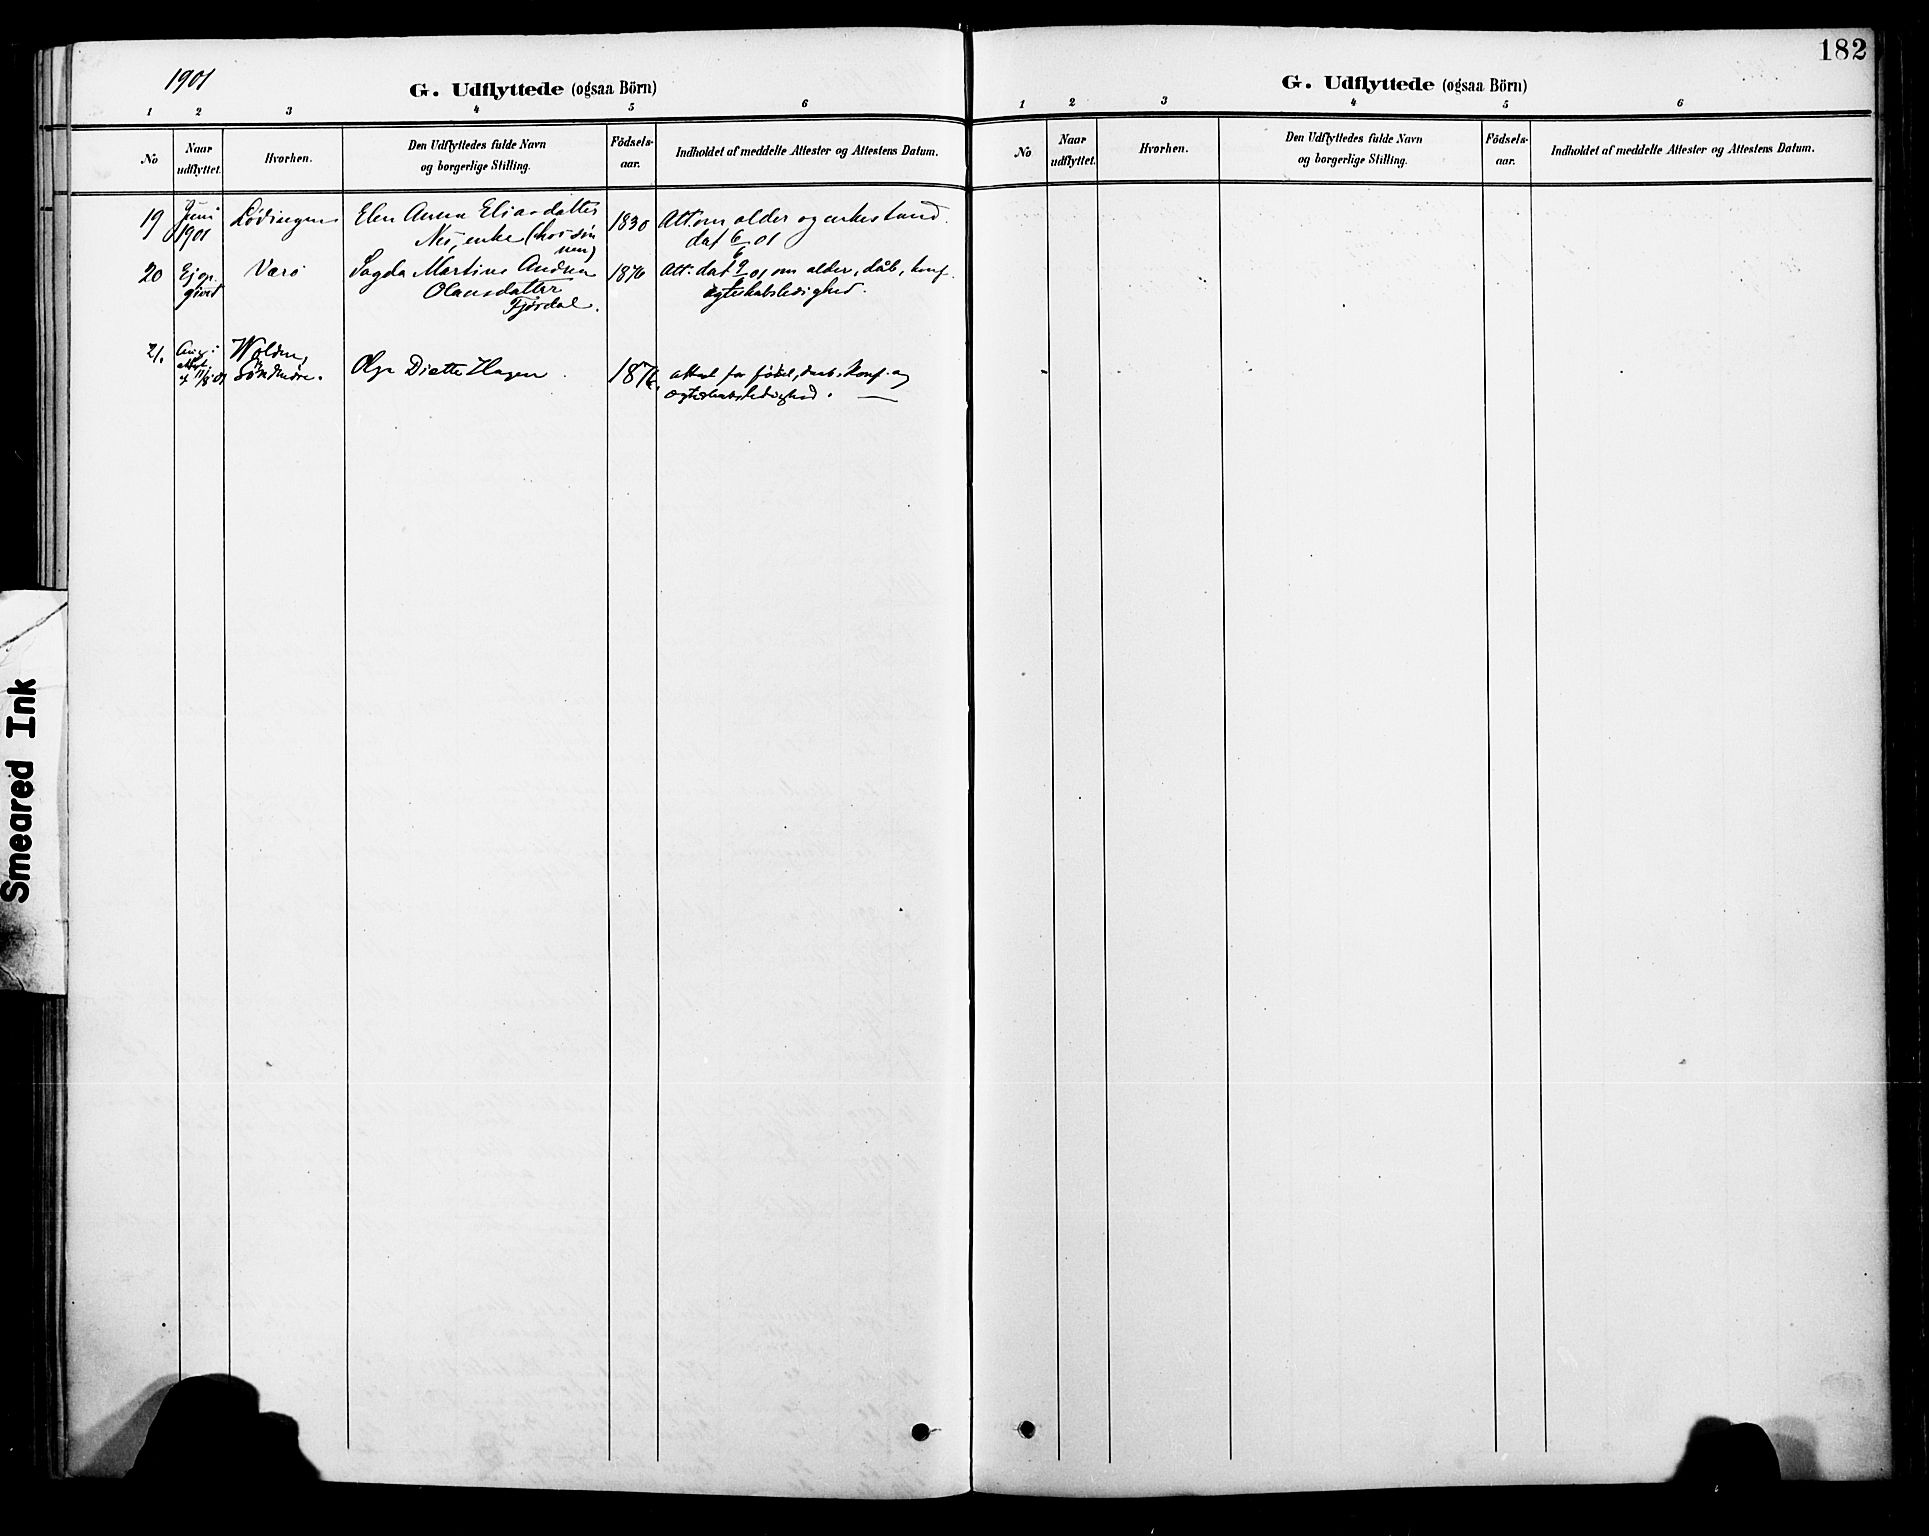 182
1901
G. Udflyttede (ogsaa Börn)
1 2 3 4 5 6
No
Naar
udflyttet.
Hvorhen.
Den Udflyttedes fulde Navn
og borgerlige Stilling.
Födsels-
aar.
Indholdet af meddelte Attester og Attestens Datum.
19
Juni
1901
Lødingen
Elen Anna Eliasdatter
Nes, enke (hos søn
nen)
1830
Att. om alder og enkestand.
dat 6/6 01
20
Ej op-
givet
Værø
Magda Martine Andrea
Olausdatter
Fjordal.
1876
Att. dat 9/6 01 om alder, dåb, konf.
ægteskabsledighed.
21.
Aug:
attest
af 11/8 01
Wolden,
Søndmøre.
Olga Hagen
1876.
attest for fødsel, daab, konf. og
ægteskabsledighed.
G. Udflyttede (ogsaa Börn)
1 2 3 4 5 6
No
Naar
udflyttet.
Hvorhen.
Den Udflyttedes fulde Navn
og borgerlige Stilling.
Födsels-
aar.
Indholdet af meddelte Attester og Attestens Datum.
Smeared Ink